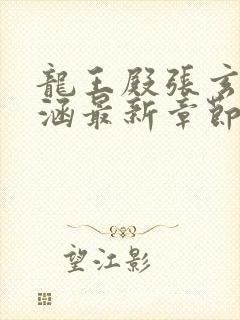 龍王殿張玄
涵最新章節
望江影